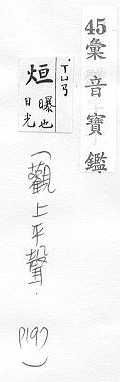 45彙音寶鑑.
ㄒㄩㄢ
烜
曝也
日光
(觀上平聲.